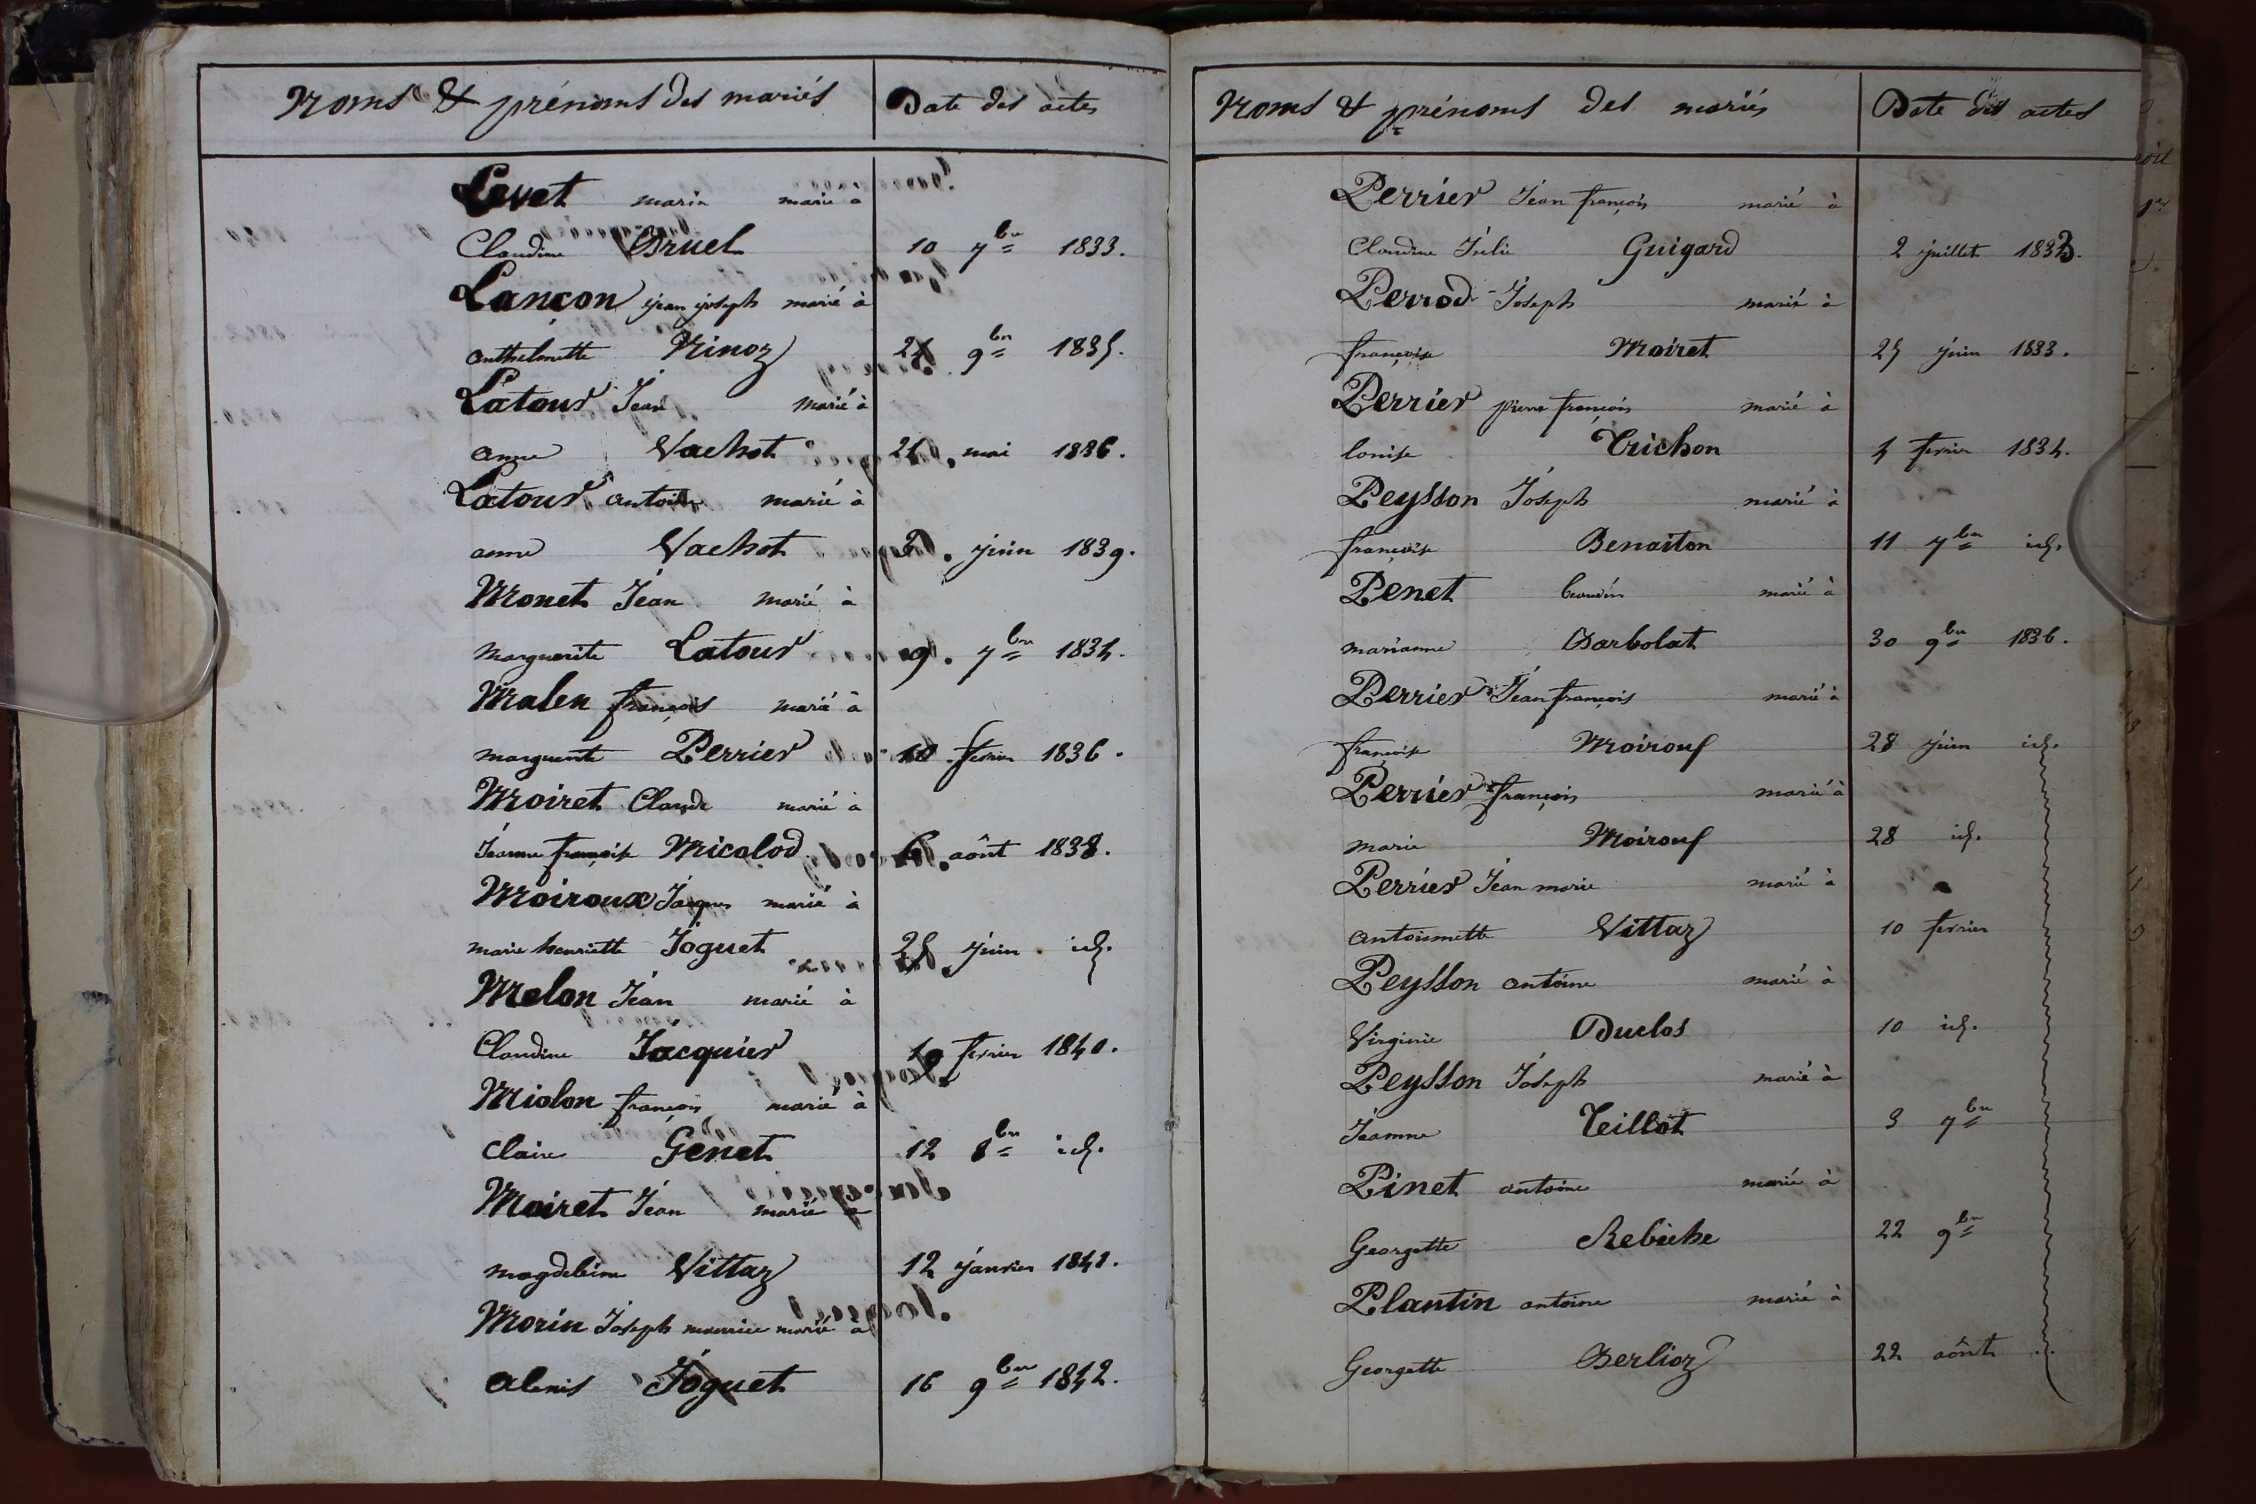 Noms & prénoms des mariés Date des actes
Levet marin marié à
Claudine Bruel 10 7bre 1833.
Lançon jean joseph marié à
anthelmette Ninoz 24 9bre 1835.
Latour Jean marié à
anne Vachot mai 1836.
Latour antoine marié à
anne Vachot juin 1839.
Monet Jean marié à
marguerite Latour 9. 7bre 1834.
Malen françois marié à
marguerite Perrier 10 fevrier 1836.
Moiret Claude marié à
Jeanne françoise Micolod 6. août 1838.
Moiroux Jacques marié à
marie henriette Joguet 25 juin id.
Melon Jean marié à
Claudine Jacquier 10 fevrier 1840.
Miolon françois marié à
Claire Genet 12 8bre id.
Moiret Jean marié à
magdeleine Vittaz 12 janvier 1841.
Morin Joseph maurice marié à
Joguet 16 9bre 1842.
Noms & prénoms des mariés Date des actes
Perrier Jean françois marié à
Claudine Julie Guigard 2 juillet 1833.
Perrod Joseph marié à
françoise Moiret 25 juin 1833.
Perrier pierre françois marié à
louise Trichon 4 fevrier 1834.
Peysson Joseph marié à
françoise Benaiton 11 7bre id.
Penet Claudin marié à
marianne Barbolat 30 9bre 1836.
Perrier Jean françois marié à
françoise Moirouf 28 juin id.
Perrier françois marié à
marie Moirouf 28 id.
Perrier Jean marie marié à
antoinette Vittaz 10 fevrier
Peysson antoine marié à
Virginie Duclos 10 id.
Peysson Joseph marié à
Jeanne Teillot 3 7bre
Pinet antoine marié à
Georgette Rebiche 22 9bre
Plantin antoine marié à
Georgette Berlioz 22 août